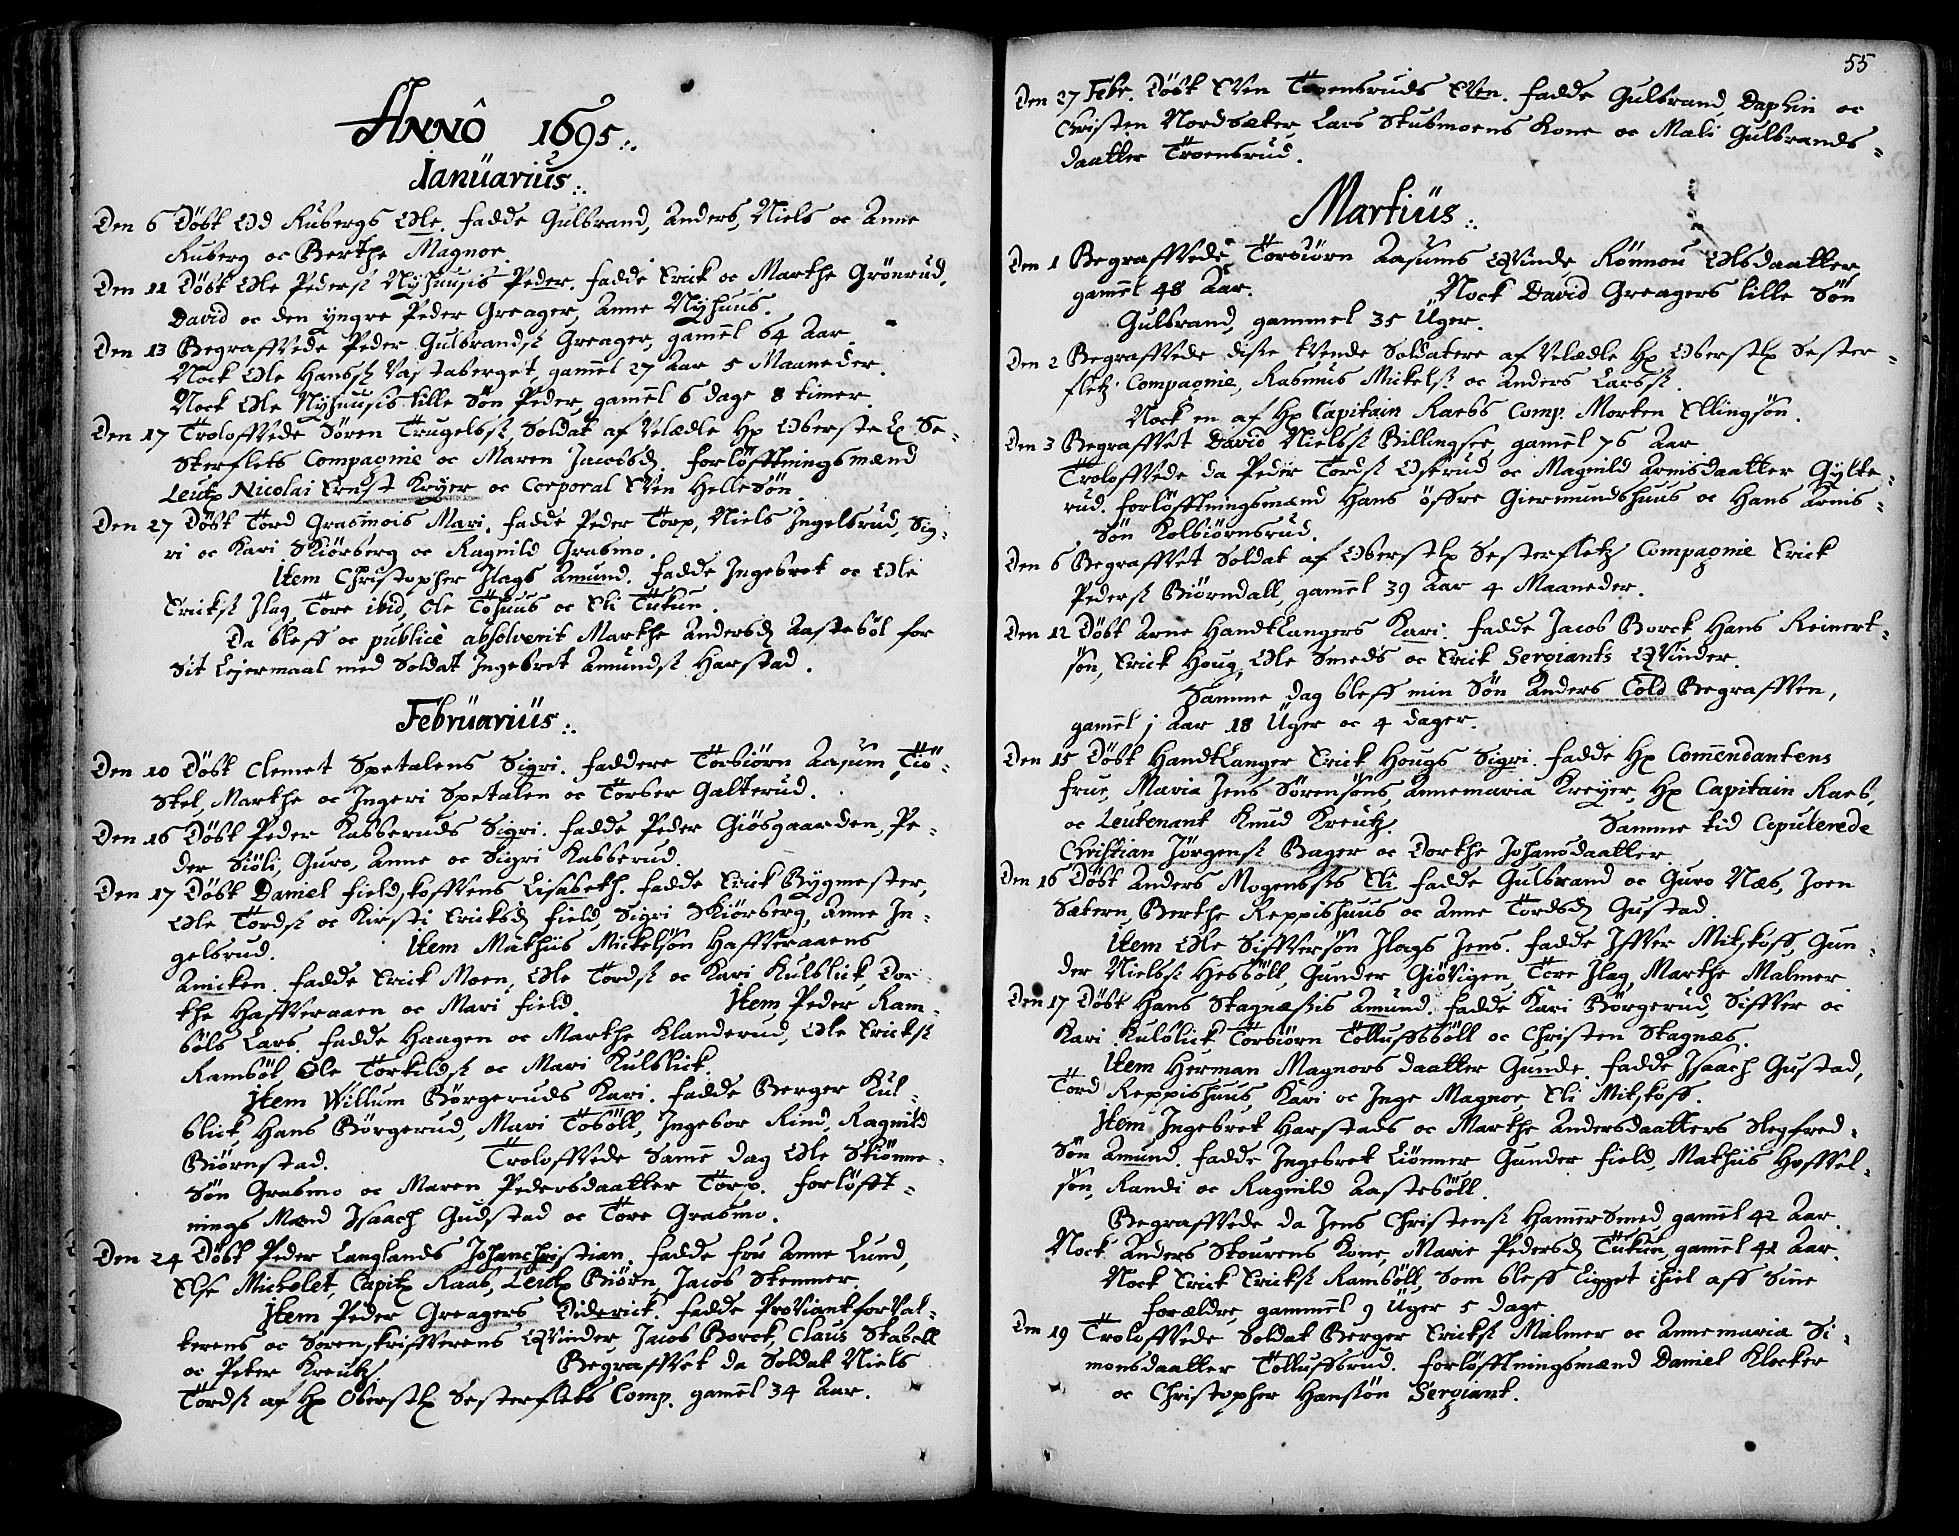 Annô 1695.
Januarius.
Den 6 Døbt Od Rubergs Ole. Fadde Gulbrand, Anders, Niels oc Anne
Ruberg oc Berthe Magnor.
Den 11 Døbt Ole Peders: Nÿhuusis Peder. Fadde Erick oc Marthe Grönrud,
David oc den yngre Peder Greager, Anne Nÿhuus.
Den 13 Begraffvede Peder Gulbrands: Greager, gamel 64 Aar.
Nock Ole Hanss: Vastaberget gamel 27 Aar 5 Maaneder.
Nock Ole Nÿhuusis lille Søn Peder, gamel 6 dage 8 timer.
Den 17 Troloffvede Søren Trugelss: Soldat af Velædle Hr Oberste L. Se-
sterflets Compagnie oc Maren Jacobsd. Forløfftningsmænd
Leut. Nicolai Ernst Kreyer oc Corporal Sven Hellesøn.
Den 27 Døbt Tord Grasmois Mari. Fadde Peder Torp, Niels Ingelsrud, Sig-
ri oc Kari Skiørberg oc Ragnild Grasmo.
Item Christopher Ilags Amund. Fadde Ingebret oc Ole
Ericks: Ilag, Tore ibid, Ole Töhuus oc Eli Tukun.
Da bleff oc publicè absolverit Marthe Andersd. Aastebøl for
Sit Lejermaal med Soldat Ingebret Amunds: Harstad.
Februarius.
Den 10 Døbt Clemet Spetalens Sigri. Faddere Torbiörn Aasum, Tiö-
stel, Marthe oc Ingeri Spetalen oc Torber Galterud.
Den 16 Døbt Peder Kasseruds Sigri. Fadde Peder Giösgaarden, Pe-
der Siöli, Guro, Anne oc Sigri Kasserud.
Den 17 Døbt Daniel Fieldskoffvens Lisabeth. Fadde Erick Bÿgmester,
Ole Tords: oc Kirsti Ericksd. Field, Sigri Skiörberg, Anne In-
gelsrud. Item Mathiis Mickelsøn Haffveraaens
Anicken. Fadde Erick Moen, Ole Tords: oc Kari Kulblick, Dor-
the Haffveraaen oc Mari Field. Item Peder Ram-
böls Lars. Fadde Haagen oc Marthe Klanderud, Ole Ericks:
Ramböl, Ole Torkilds: oc Mari Kulblick.
Item Willum Börgeruds Kari. Fadde Berger Kul-
blick, Hans Börgerud, Mari Toböll, Ingebor Rind, Ragnild
Biörnstad. Troloffvede Same dag Ole Skiönne-
søn Grasmo oc Maren Pedersdaatter Torp. Forløfft-
nings Mænd Isaach Gudstad oc Tore Grasmo.
Den 24 Døbt Peder Langlands Johanchristian. Fadde Fru Anne Lund,
Else Michelet, Capit. Raas, Leut. Biörn, Jacob Stemner.
Item Peder Greagers Diderick. Fadde Proviantforval-
terens oc Sorenskrifverens Qvinder, Jacob Borck, Claus Stabell
oc Peter Kreutz. Begraffvet da Soldat Niels
Tords: af Hr Oberstl. Sesterflets Comp. gamel 34 Aar.
55
Den 27 Febr. Døbt Sven Troensruds Sven. Fadde Gulbrand, Daphin oc
Christen Nordsæter, Lars Stubmoens Kone oc Mali Gulbrands-
daatter Troensrud.
Martius.
Den 1 Begraffvede Torbiörn Aasums Qvinde Rönnou Olsdaatter
gamel 48 Aar. Nock David Greagers lille Søn
Gulbrand, gammel 35 Uger.
Den 2 Begraffvede disse tvende Soldatere af Velædle Hr Oberstl. Sester-
fletz Compagnie, Rasmus Mickels: oc Anders Larss:
Nock en af Hr Capitain Raebs Comp. Morten Ellingsøn.
Den 3 Begraffvet David Nielss: Billingsee, gamel 76 Aar
Troloffvede da Peder Tords: Oserud oc Magnild Armsdaatter Gylte-
rud. Forløfftningsmænd Hans öffre Giermundshuus oc Hans Arms-
søn Kolbiörnsrud.
Den 6 Begraffvet Soldat af Oberstl. Sesterfletz Compagnie Erick
Peders: Biörndall, gamel 39 Aar 4 Maaneder.
Den 12 Døbt Arne Handtlangers Kari. Fadde Jacob Borck, Hans Reinert-
søn, Erick Houg, Ole Smeds oc Erick Sergiants Qvinder.
Samme dag bleff min Søn Anders Cold Begraffven,
gamel 1 Aar 18 Uger oc 4 dager.
Den 15 Døbt Handtlanger Erick Hougs Sigri. Fadde Hr Comendantens
Frue, Maria Jens Sørensøns, Annemaria Kreyer, Hr Capitain Raeb,
oc Leutenant Knud Kreutz. Samme tid Copulerede
Christian Jörgens: Bager oc Dorthe Johansdaatter
Den 16 Døbt Anders Mogenssis Eli. Fadde Gulbrand oc Guro Næb, Joen
Sætern, Berthe Reppishuus oc Anne Tordsd. Gustad.
Item Ole Siffversøn Ilags Jens. Fadde Iffver Mitskoff, Gun-
der Nielss: Hesböll, Gunder Giövigen, Tore Ilag, Marthe Malmer.
Den 17 Døbt Hans Skagnæssis Amund. Fadde Kari Börgerud, Siffver oc
Kari Kulblick, Torbiörn Tollussböll oc Christen Skagnæs.
Item Herman Magnors daatter Gunde. Fadde Isaach Gustad,
Tord Reppishuus, Kari oc Inge Magnor, Eli Mitskoff.
Item Ingebret Harstads oc Marthe Andersdaatters Slegfred-
Søn Amund. Fadde Ingebret Liönner, Gunder Field, Mathiis Hoffvel-
søn, Randi oc Ragnild Aasteböll.
Begraffvede da Jens Christens: Hamersmed, gamel 42 Aar.
Nock Anders Skourens Kone, Marie Pedersd. Tukun, gamel 41 Aar.
Nock Erick Ericks: Ramböll, som bleff ligget ihiel aff sine
Forældre, gammel 9 Uger 5 dage
Den 19 Troloffvede Soldat Berger Ericks: Malmer oc Annemaria Si-
monsdaatter Tollussrud. Forløfftningsmænd Daniel Klocker
oc Christopher Hanssøn Sergiant.